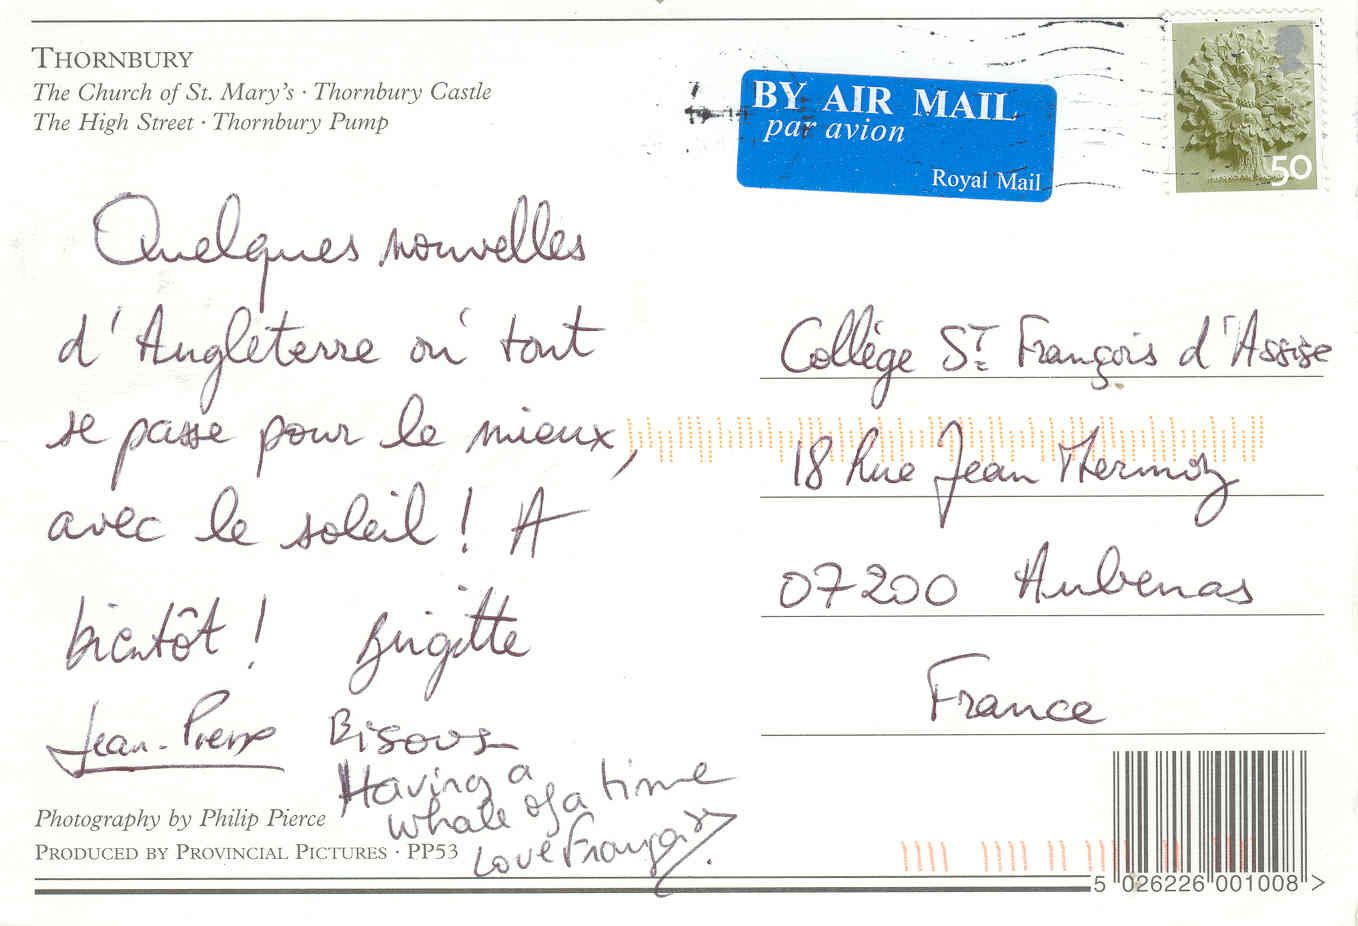 THORNBURY
The Church of St. Mary's · Thornbury Castle
The High Street · Thornbury Pump
BY AIR MAIL
par avion
Royal Mail
50
Quelques nouvelles
d'Angleterre où tout
se passe pour le mieux,
avec le soleil ! A
bientôt ! Brigitte
Jean-Pierre Bisous
Having a
whale of a time
Love Françoise
Collège ST François d'Assise
18 Rue Jean Mermoz
07200 Aubenas
France
Photography by Philip Pierce
PRODUCED BY PROVINCIAL PICTURES · PP53
5 026226 001008 >